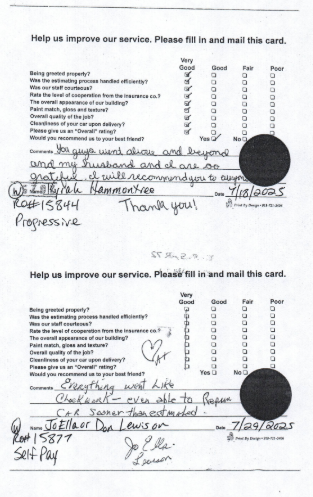 Help us improve our service. Please fill in and mail this card.
Very
Good Good Fair Poor
Being greeted properly?
Was the estimating process handled efficiently?
Was our staff courteous?
Rate the level of cooperation from the insurance co.?
The overall appearance of our building?
Paint match, gloss and texture?
Overall quality of the job?
Cleanliness of your car upon delivery?
Please give us an "Overall" rating?
Would you recommend us to your best friend? Yes No
Comments You guys went above and beyond
and my husband and I are so
grateful. I will recommend you to
W Name Hammontree Date 7/18/2025
Ro# 15844 Thank you!
Progressive
Help us improve our service. Please fill in and mail this card.
Very
Good Good Fair Poor
Being greeted properly?
Was the estimating process handled efficiently?
Was our staff courteous?
Rate the level of cooperation from the insurance co.?
The overall appearance of our building?
Paint match, gloss and texture?
Overall quality of the job?
Cleanliness of your car upon delivery?
Please give us an "Overall" rating?
Would you recommend us to your best friend? Yes No
Comments Everything went Like
Clockwork - even able to
CAR Sooner than estimated.
W Name JoElla or Don Lewison Date 7/29/2025
Ro# 15877 Jo Ella
Self Pay Lewison